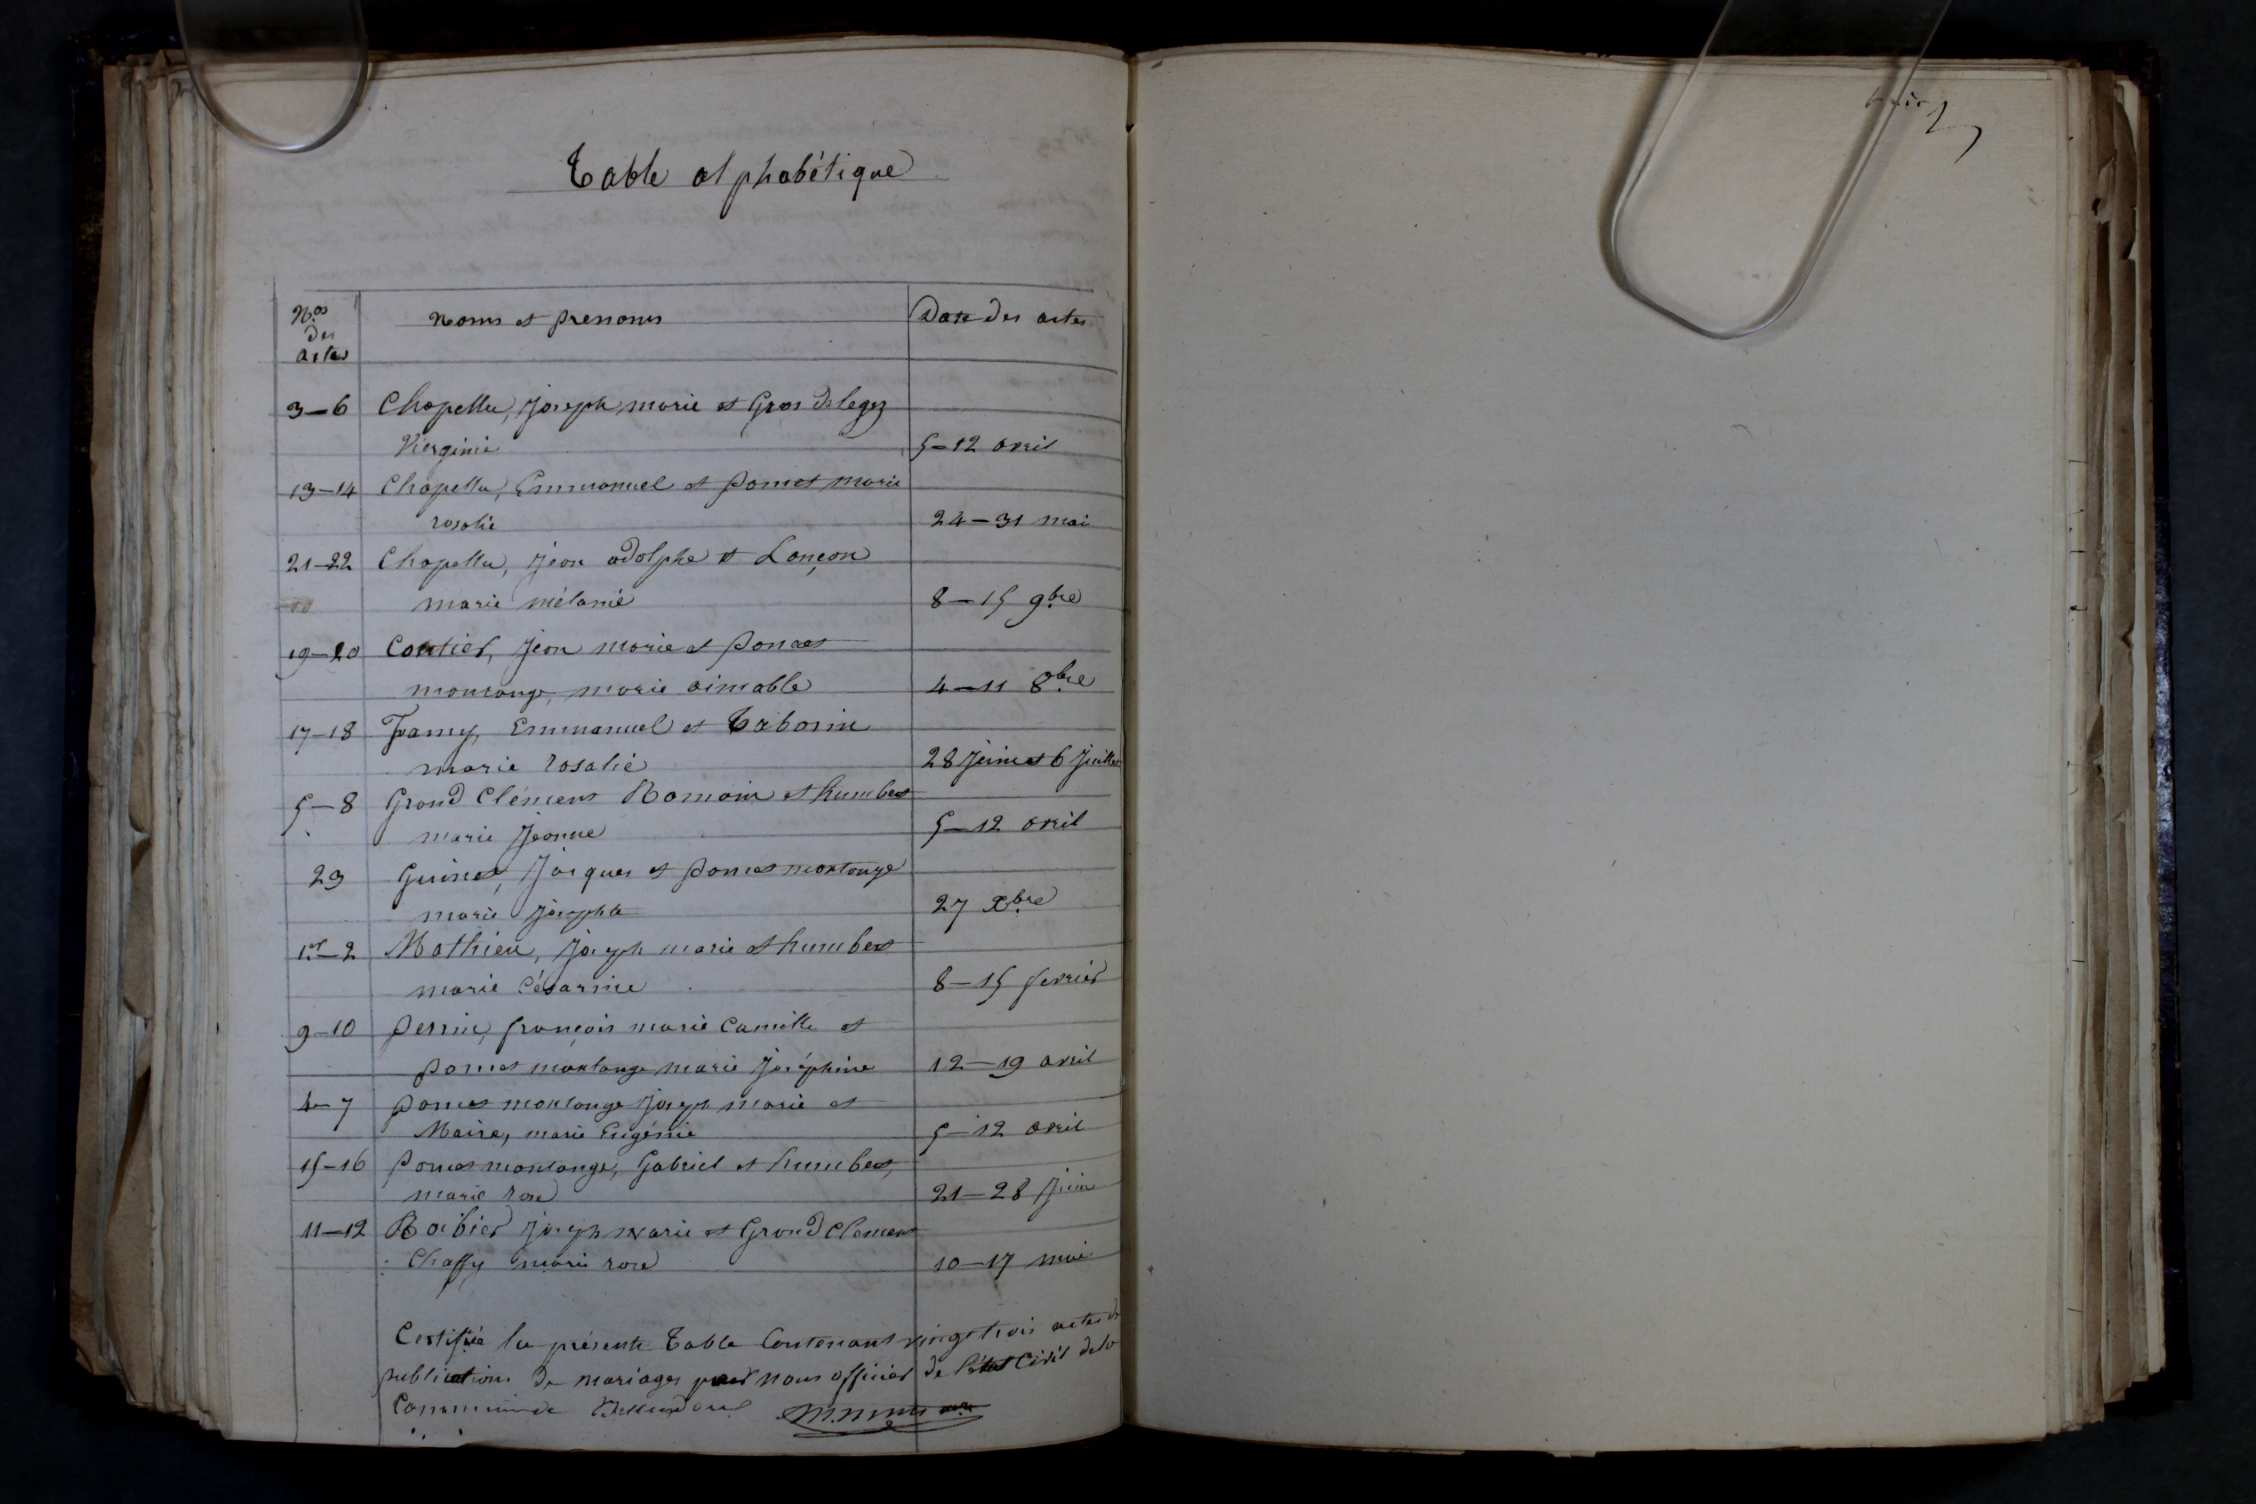 Table alphabétique
Nos des actes Noms et prenoms Date des actes
3-6 Chapellu, Joseph marie et Gros delegez
Virginie 5-12 avril
13-14 Chapellu, Emmanuel et Poncet marie
rosalie 24-31 mai
21-22 Chapellu, Jean adolphe et Lançon
marie mélanie 8-15 9bre
19-20 Coutier, Jean marie et Poncet
montange, marie aimable 4-11 8bre
17-18 Framy, Emmanuel et Taborin
marie rosalie 28 Juin et 6 Juillet
5-8 Grand Clément Romain et humbert
marie Jeanne 5-12 avril
23 Guinet, Jacques et Poncet montange
marie Josephte 27 Xbre
1er-2 Mathieu, Joseph marie et humbert
marie Césarine 8-15 fevrier
9-10 Perrin, françois marie Camille et
Poncet montange marie Joséphine 12-19 avril
4-7 Poncet montange Joseph marie et
Maire, marie Eugénie 5-12 avril
15-16 Poncet montange, Gabriel et humbert,
marie rose 21-28 Juin
11-12 Roibier Joseph marie et Grand Clement
Chaffy marie rose 10-17 mai
Certifiée la présente Table Contenant vingt trois actes de
publications de mariages par nous officier de l'état Civil de la
Commune de Belleydoux